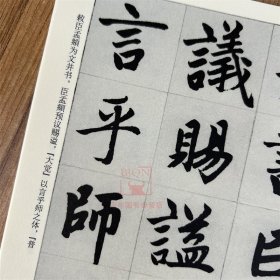 議賜謚
言乎師
敕臣孟頫为文并书。臣孟頫预议赐谥，「大觉」以言乎师之体，「普